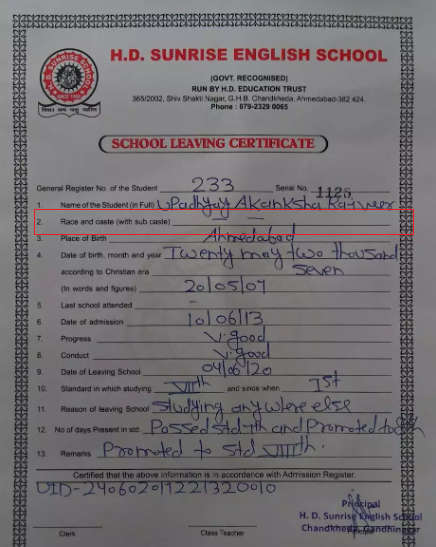 H.D. SUNRISE ENGLISH SCHOOL
(GOVT. RECOGNISED)
RUN BY H.D. EDUCATION TRUST
365/2002, Shiv Shakti Nagar, G.H.B. Chandkheda, Ahmedabad-382 424.
Phone : 079-2329 0065
SCHOOL LEAVING CERTIFICATE
General Register No. of the Student 233 Serial No. 1125
1. Name of the Student (in Full) Upadhyay Akanksha
2. Race and caste (with sub caste) —
3. Place of Birth Ahmedabad
4. Date of birth, month and year Twenty may two thousand
according to Christian era Seven
(In words and figures) 20/05/07
5. Last school attended –
6. Date of admission 10/06/13
7. Progress V.good
8. Conduct V.good
9. Date of Leaving School 04/06/20
10. Standard in which studying VIIth and since when 1st
11. Reason of leaving School Studying any where else
12. No of days Present in std. Passed Std 7th and Promoted to 8th
13. Remarks Promoted to Std VIIIth.
Certified that the above information is in accordance with Admission Register.
UID-240602017221320010
Principal
H. D. Sunrise English School
Chandkheda, Gandhinagar
Clerk Class Teacher